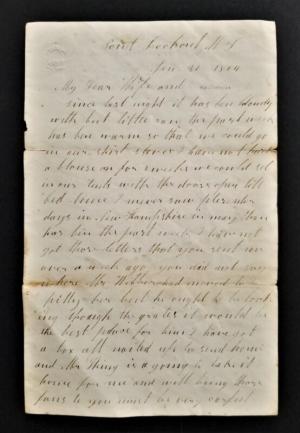 Point Lookout Md
Jan 31 1864
My Dear Wife and
since last night it has ben cloudy
with but little rain the past week
has ben warm so that we could go
in our shirt sleves I have not had
a blouse on for a weeke we could set
in our tent with the doors open till
bed time I never saw plesenter
days in New Hampshire in may than
has ben the past week I have not
got those letters that you sent me
over a week ago you did not say
where Mr had moved to
pitty her but he ought to be look
ing through the grates it would be
the best place for him I have got
a box all nailed up to send home
and Mr Thing is a going to take it
home for me and will bring those
to you must be very carful